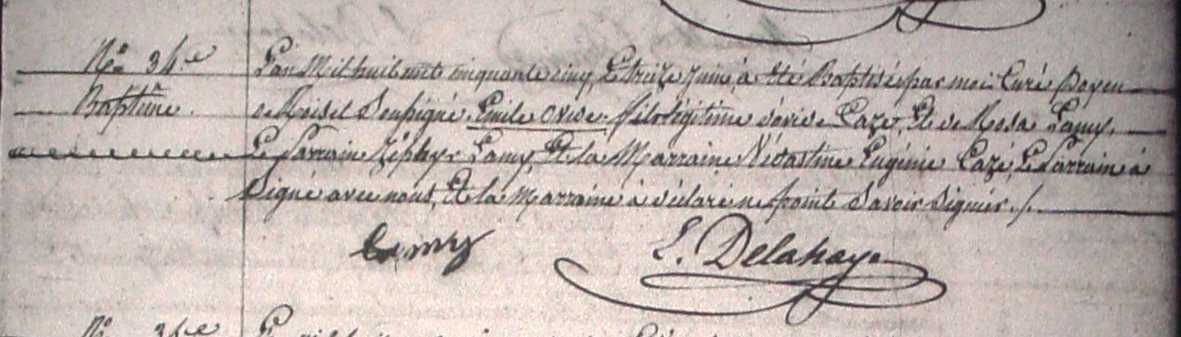 N° 34.e
Baptême.
L'an Mil huit cent cinquante cinq, Le treize Juin, à été Baptisé par moi Curé Doyen
de Roisel Soussigné. Emile Ovide. fils légitime d'ovide Cazé, Et de Rosa Lamy.
Le Parrain Zéphyr Lamy, Et la Marraine Védastine Eugénie Cazé, Le Parrain à
Signé avec nous, Et la Marraine à déclaré ne point Savoir Signer ./.
Lamy
E. Delahaye